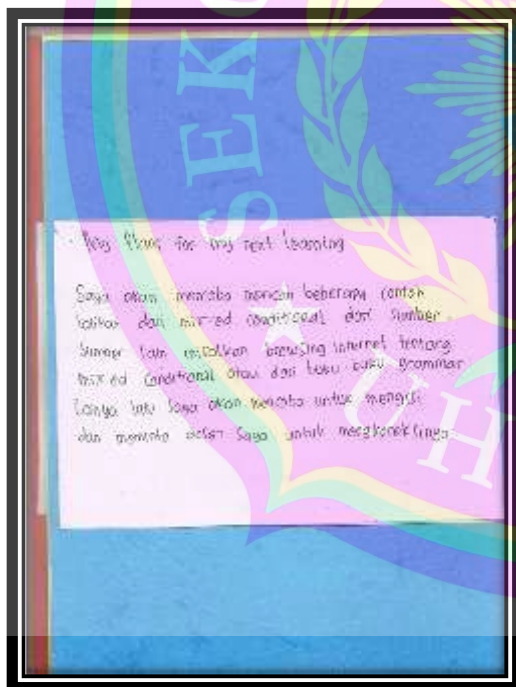 SEK
UH
My Plans for my next learning
Saya akan mencoba mencari beberapa contoh
latihan dari mixed conditional dari sumber
sumber lain misalkan browsing internet tentang
mixed conditional atau dari buku buku grammar
lainya lalu saya akan mencoba untuk mengisi
dan meminta dosen saya untuk mengkoreksinya